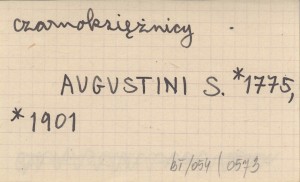 czarnoksiężnicy.
AUGUSTINI S. *1775,
*1901
bł/054/0573